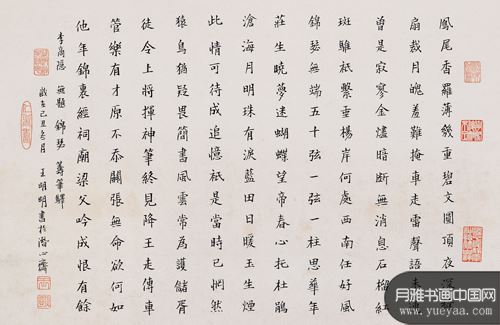 鳳尾香羅薄幾重碧文圓頂夜深縫
扇裁月魄羞難掩車走雷聲語未通
曾是寂寥金燼暗斷無消息石榴紅
斑騅祇繫垂楊岸何處西南任好風
錦瑟無端五十弦一弦一柱思華年
莊生曉夢迷蝴蝶望帝春心托杜鵑
滄海月明珠有淚藍田日暖玉生煙
此情可待成追憶祇是當時已惘然
猿鳥猶疑畏簡書風雲常為護儲胥
徒令上將揮神筆終見降王走傳車
管樂有才原不忝關張無命欲何如
他年錦裏經祠廟梁父吟成恨有餘
李商隱 無題 錦瑟 籌筆驛
歲在己丑冬月 王明明書於潛心齋
月雅书画中国网
www.yueyaa.com